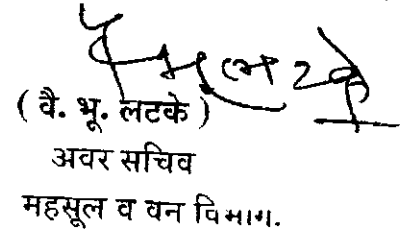 ( वै. भू. लटके )
अवर सचिव
महसूल व वन विभाग.